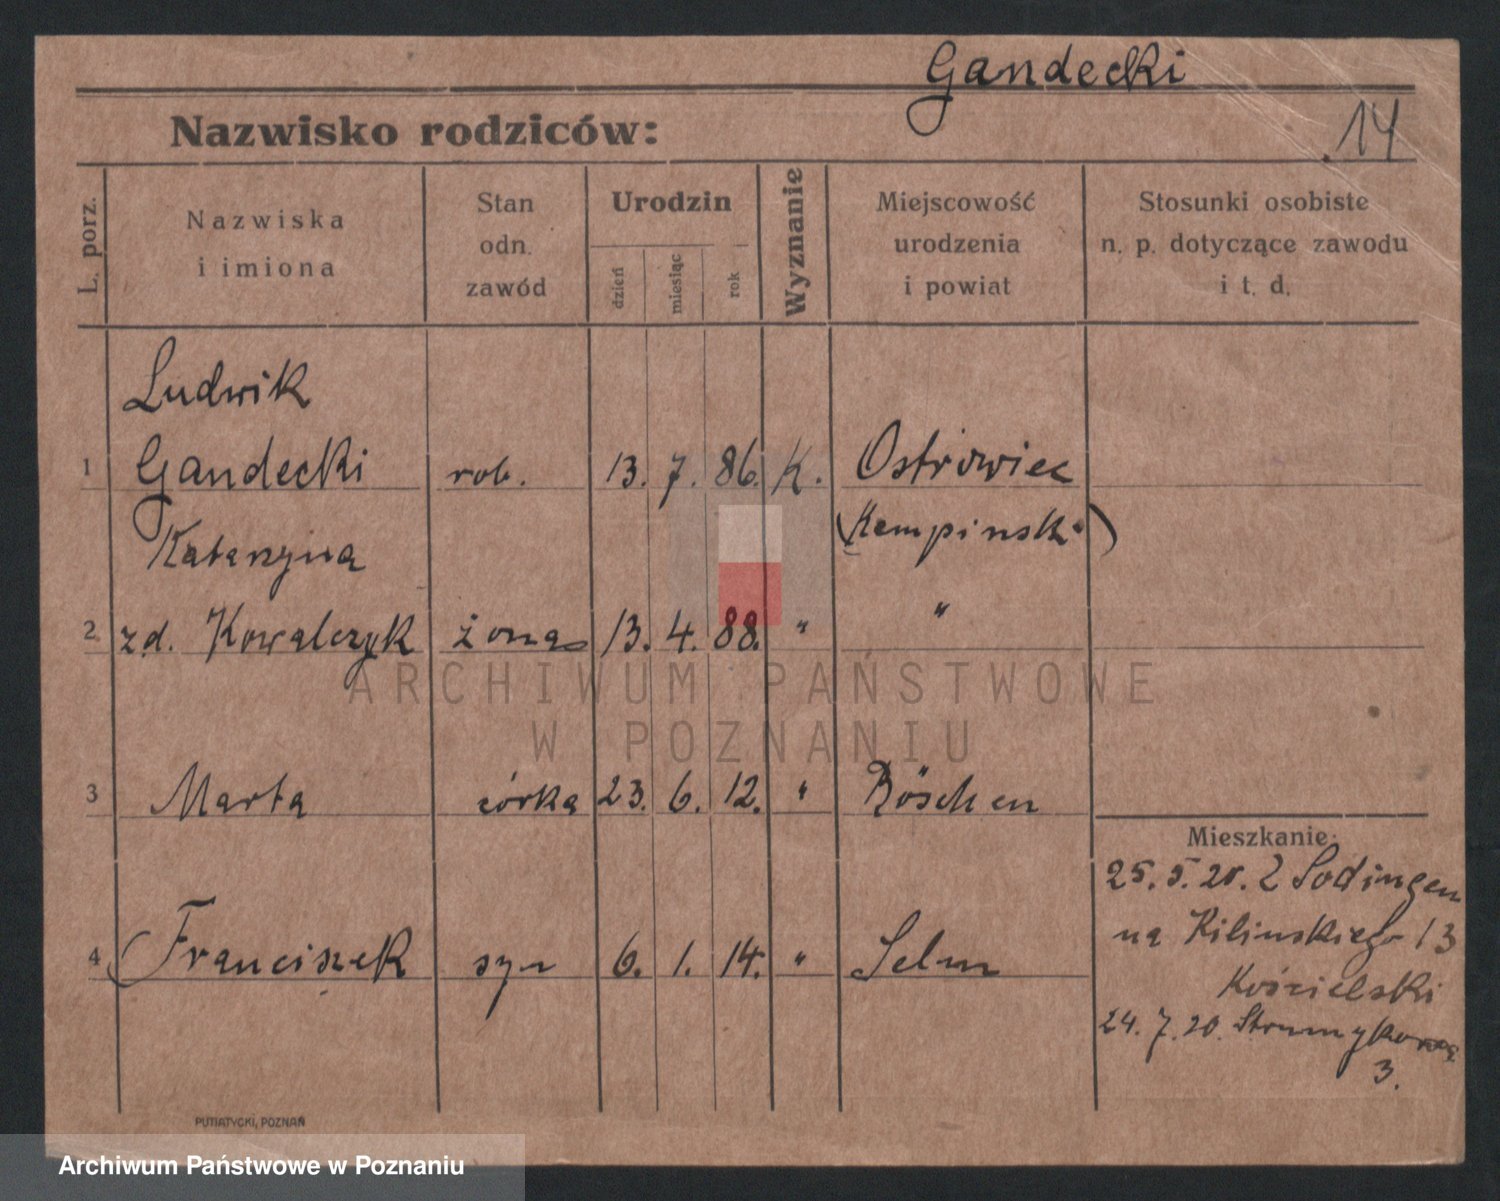 Gandecki
Nazwisko rodziców:
14
L. porz.
Nazwiska
i imiona
Stan
odn.
zawód
Urodzin
dzień
miesiąc
rok
Wyznanie
Miejscowość
urodzenia
i powiat
Stosunki osobiste
n. p. dotyczące zawodu
i t. d.
Ludwik
1 Gandecki rob. 13. 7. 86. K. Ostrowiec
(Kempinsk.)
Katarzyna
2 z d. Kowalczyk żona 13. 4. 88. " "
3 Marta córka 23. 6. 12. " Röschen
4 Franciszek syn 6. 1. 14. " Selm
Mieszkanie:
25. 5. 20. Z Sodingen
na Kilinskiego 13
Kościelski
24. 7. 20. Strumykowa
3.
PUTIATYCKI, POZNAŃ
ARCHIWUM PAŃSTWOWE
W POZNANIU
Archiwum Państwowe w Poznaniu